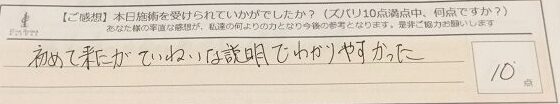 【ご感想】本日施術を受けられていかがでしたか？（ズバリ10点満点中、何点ですか？）
あなた様の率直な感想が、私達の何よりの力となり今後の参考となります。是非ご協力お願いします
初めて来たが ていねいな説明でわかりやすかった
10
点